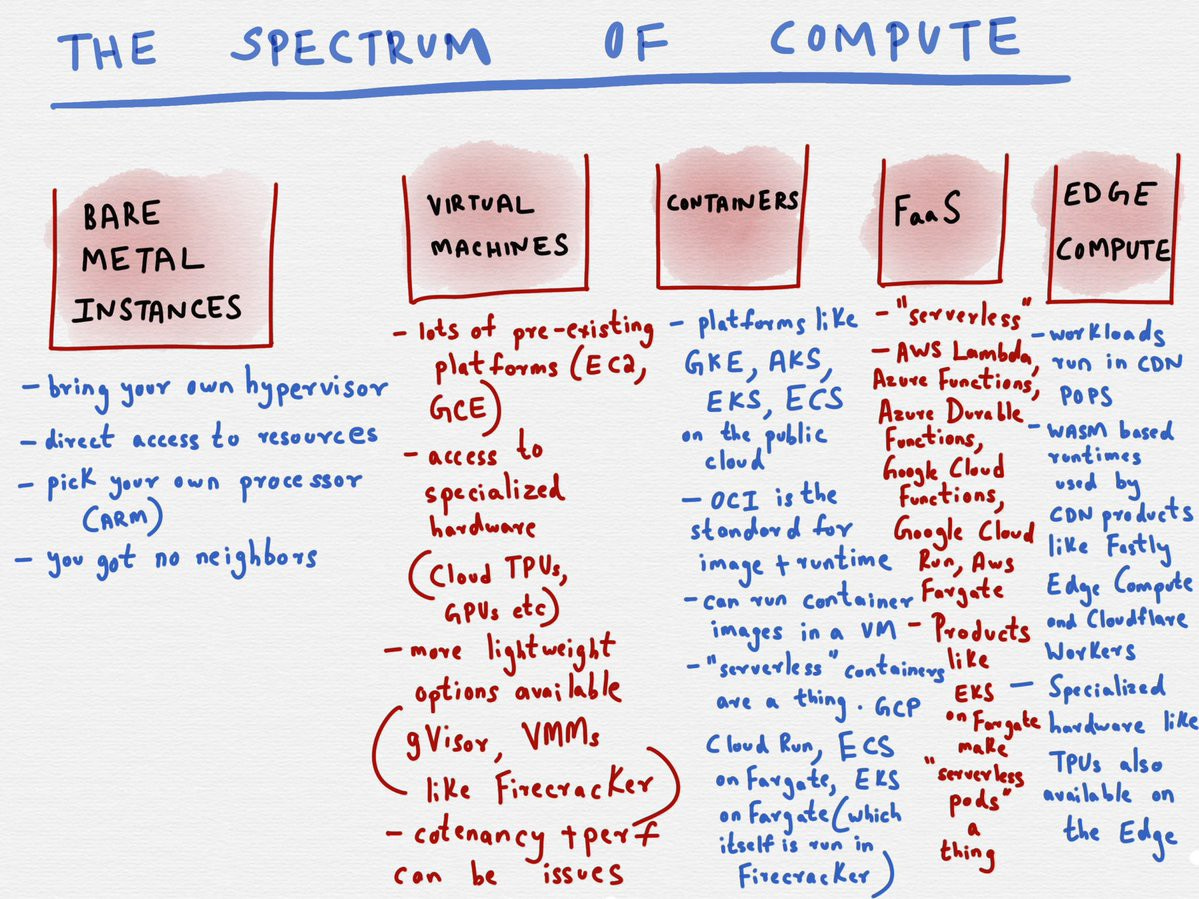 THE SPECTRUM OF COMPUTE
BARE
METAL
INSTANCES
- bring your own hypervisor
- direct access to resources
- pick your own processor
(ARM)
- you got no neighbors
VIRTUAL
MACHINES
- lots of pre-existing
platforms (EC2,
GCE)
- access to
specialized
hardware
(Cloud TPUs,
GPUs etc)
- more lightweight
options available
(gVisor, VMMs
like Firecracker)
- cotenancy + perf
can be issues
CONTAINERS
- platforms like
GKE, AKS,
EKS, ECS
on the public
cloud
- OCI is the
standard for
image + runtime
- can run container
images in a VM
- "serverless" containers
are a thing. GCP
Cloud Run, ECS
on Fargate, EKS
on Fargate (which
itself is run in
Firecracker)
FaaS
- "serverless"
- AWS Lambda,
Azure Functions,
Azure Durable
Functions,
Google Cloud
Functions,
Google Cloud
Run, Aws
Fargate
- Products
like
EKS
on Fargate
make
"serverless
pods"
a
thing
EDGE
COMPUTE
- workloads
run in CDN
POPS
- WASM based
runtimes
used by
CDN products
like Fastly
Edge Compute
and Cloudflare
Workers
- Specialized
hardware like
TPUs also
available on
the Edge